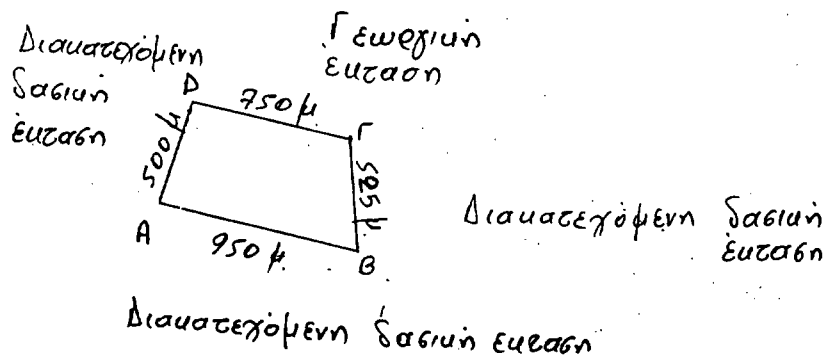 Διακατεχόμενη
δασική
έκταση
Γεωργική
έκταση
Δ
750 μ
Γ
500 μ
525 μ.
Α
950 μ.
Β
Διακατεχόμενη δασική
έκταση
Διακατεχόμενη δασική εκταση